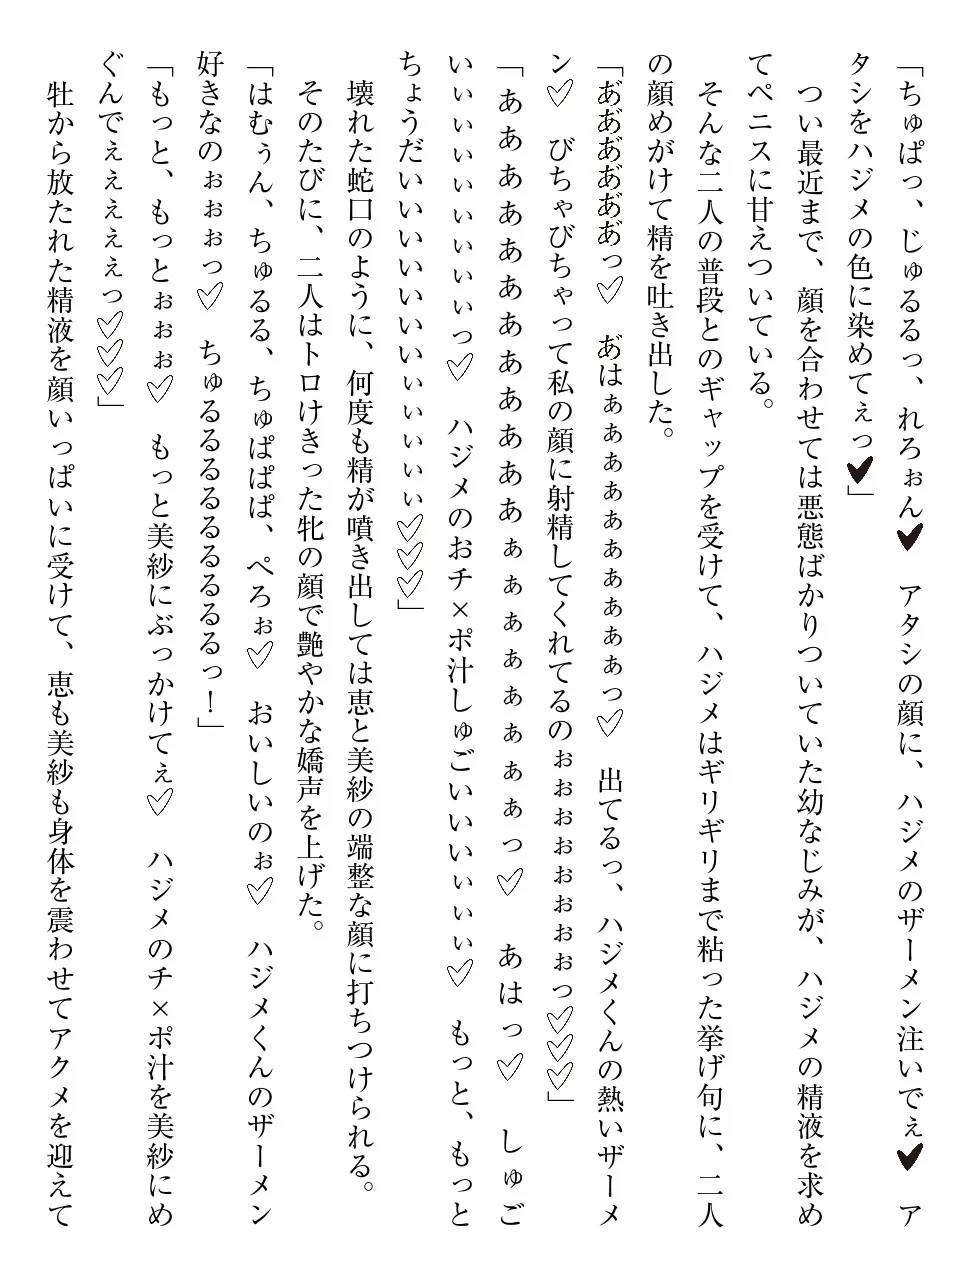 「ちゅぱっ、じゅるるっ、れろぉん♥　アタシの顔に、ハジメのザーメン注いでぇ♥　ア
タシをハジメの色に染めてぇっ♥」
　つい最近まで、顔を合わせては悪態ばかりついていた幼なじみが、ハジメの精液を求め
てペニスに甘えついている。
　そんな二人の普段とのギャップを受けて、ハジメはギリギリまで粘った挙げ句に、二人
の顔めがけて精を吐き出した。
「あ゛あ゛あ゛あ゛あ゛っ♡　あ゛はぁぁぁぁぁぁぁぁぁぁっ♡　出てるっ、ハジメくんの熱いザーメ
ン♡　びちゃびちゃって私の顔に射精してくれてるのぉぉぉぉぉぉぉぉっ♡♡♡」
「ああああああああああああぁぁぁぁぁぁぁぁっ♡　あはっ♡　しゅご
いぃぃぃぃぃぃぃぃっ♡　ハジメのおチ×ポ汁しゅごいいいぃぃぃ♡　もっと、もっと
ちょうだいいいいいいいぃぃぃぃぃ♡♡♡」
　壊れた蛇口のように、何度も精が噴き出しては恵と美紗の端整な顔に打ちつけられる。
　そのたびに、二人はトロけきった牝の顔で艶やかな嬌声を上げた。
「はむぅん、ちゅるる、ちゅぱぱぱ、ぺろぉ♡　おいしいのぉ♡　ハジメくんのザーメン
好きなのぉぉぉっ♡　ちゅるるるるるるるるるるっ！」
「もっと、もっとぉぉぉ♡　もっと美紗にぶっかけてぇ♡　ハジメのチ×ポ汁を美紗にめ
ぐんでぇぇぇぇっ♡♡♡」
　牡から放たれた精液を顔いっぱいに受けて、恵も美紗も身体を震わせてアクメを迎えて